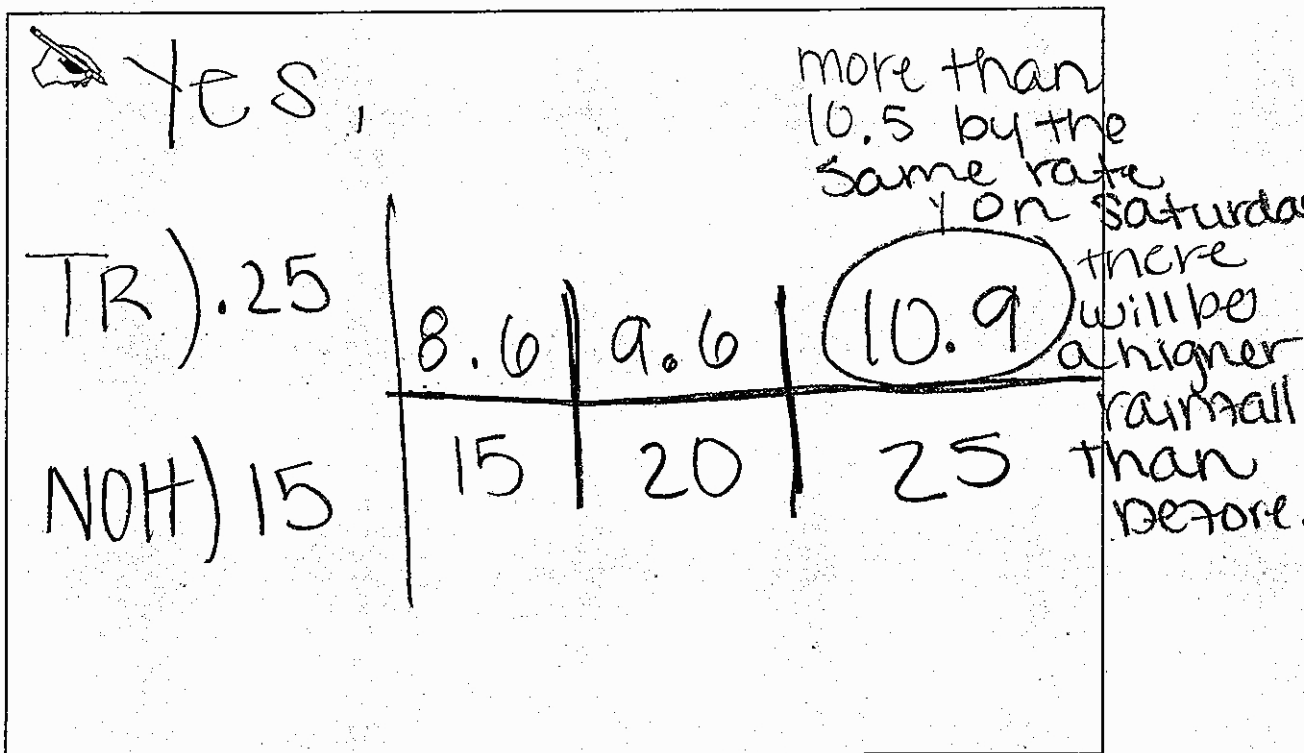 Yes,
more than
10.5 by the
same rate
on saturda
there
will be
a higher
rainfall
than
before.
TR) .25
8.6 | 9.6 | 10.9
NOH) 15
15 | 20 | 25